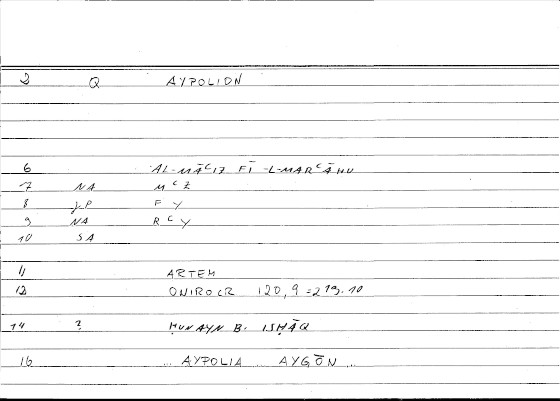 2 Q AYPOLION
6 AL-MĀᶜIZ FĪ -L-MARᶜĀHU
7 NA MᶜZ
8 JP F Y
9 NA RᶜY
10 SA
11 ARTEM
12 ONIROCR 120, 9 = 219.10
14 ? ḤUNAYN B. ISḤĀQ
16 ... AYPOLIA AYGŌN ...